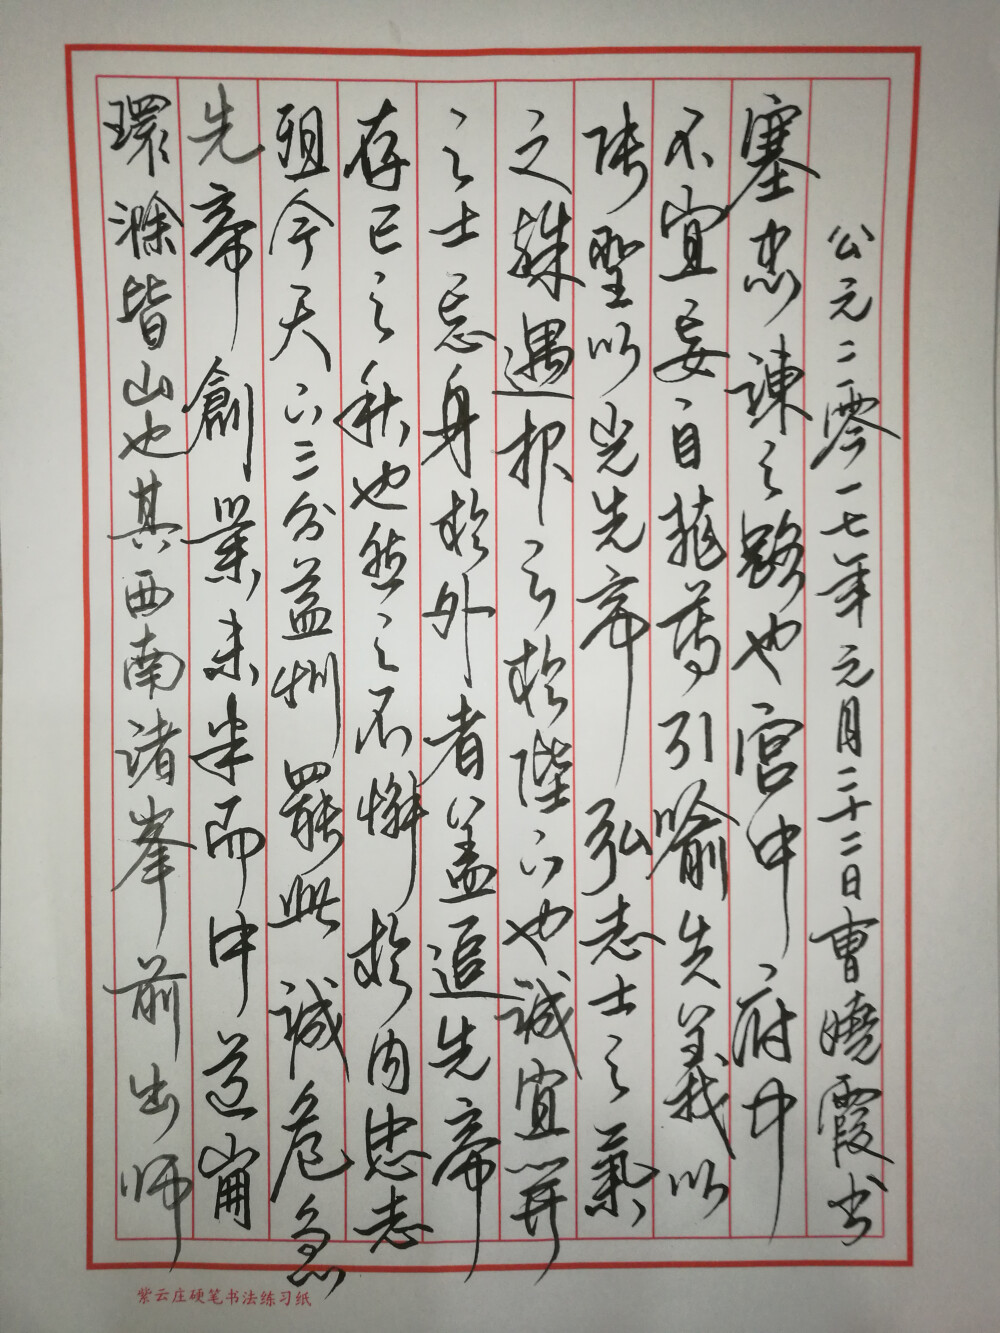 環滁皆山也其西南諸峯前出师
先帝創業未半而中道崩
殂今天下三分益州罷誠危急
存亡之秋也然之不懈於内忠志
之士忘身於外者盖追先帝
之殊遇报之於陛下也誠宜開
张聖以光先帝弘志士之氣
不宜妄自菲薄引喻失義以
塞忠諫之路也宫中府中
公元二零一七年元月二十二日曹曉霞书
紫云庄硬笔书法练习纸